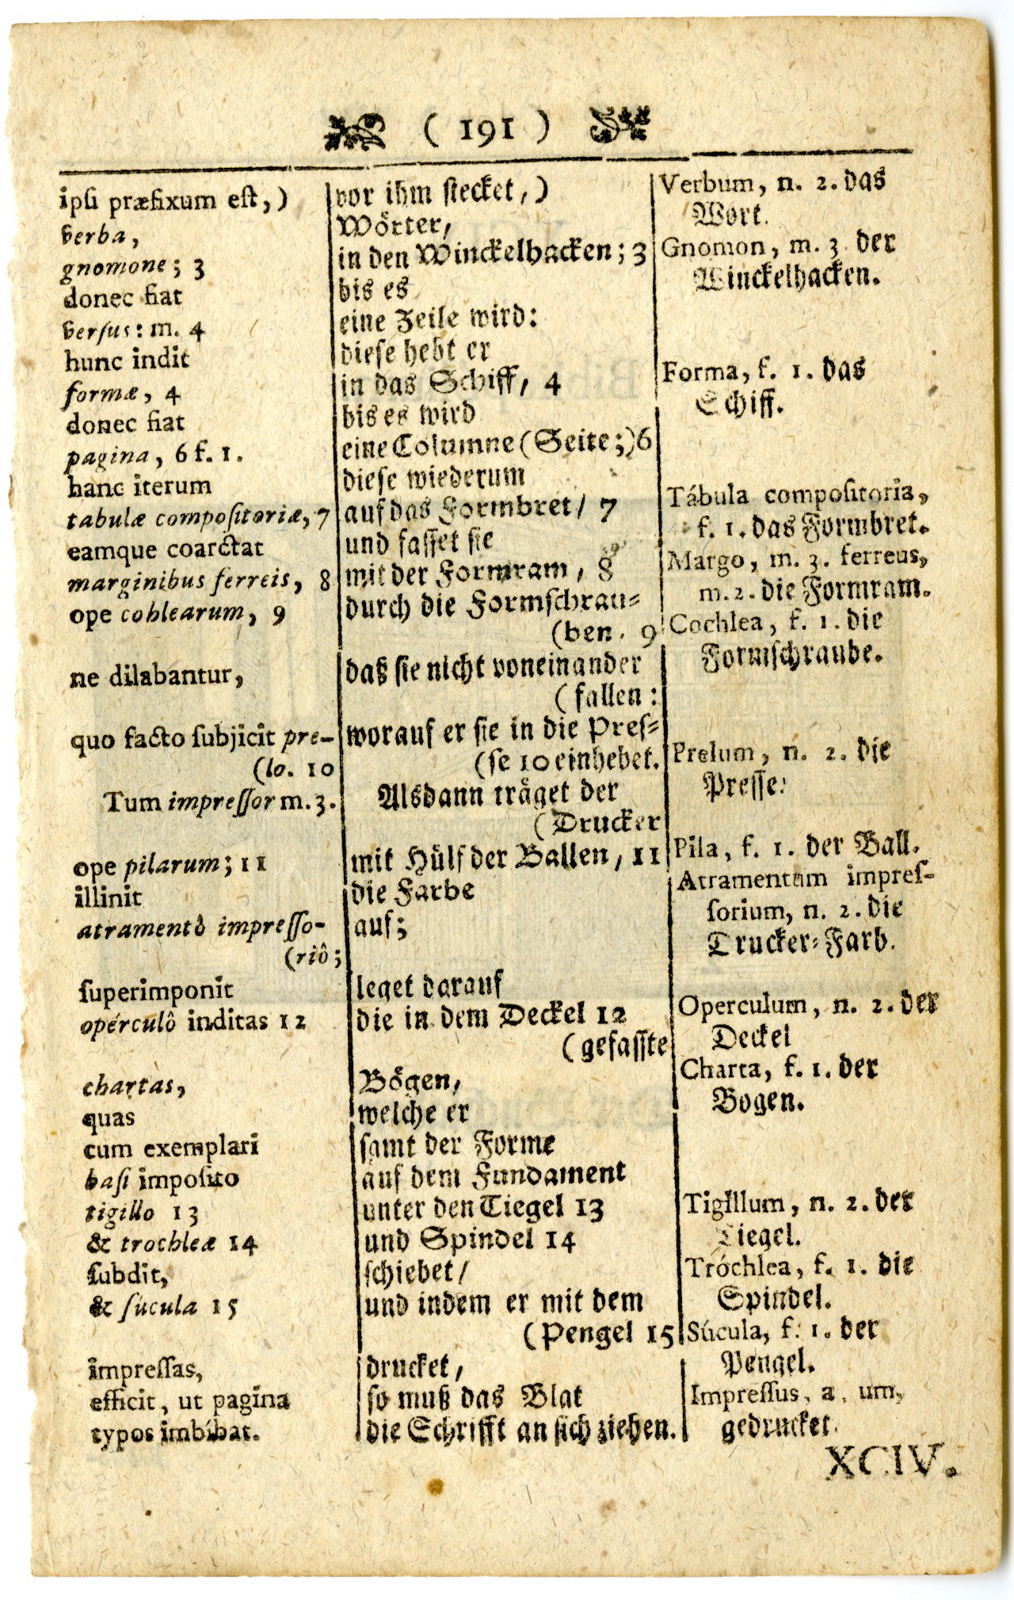 ( 191 )
ipsi præfixum est,)
verba,
gnomone; 3
donec fiat
versus: m. 4
hunc indit
formæ, 4
donec fiat
pagina, 6 f. 1.
hanc iterum
tabulæ compositoriæ, 7
eamque coarctat
marginibus ferreis, 8
ope cohlearum, 9
ne dilabantur,
quo facto subjicit pre-
(lo. 10
Tum impressor m. 3.
ope pilarum; 11
illinit
atramentô impresso-
(riô;
superimponit
opérculô inditas 12
chartas,
quas
cum exemplari
basi imposito
tigillo 13
& trochleæ 14
subdit,
& súcula 15
impressas,
efficit, ut pagina
typos imbíbat.
vor ihm stecket,)
Wörter,
in den Winckelhacken; 3
bis es
eine Zeile wird:
diese hebt er
in das Schiff, 4
bis es wird
eine Columne (Seite;) 6
diese wiederum
auf das Formbret / 7
und fasset sie
mit der Formram, 8
durch die Formschrau-
(ben. 9
daß sie nicht voneinander
(fallen:
worauf er sie in die Pres-
(se 10 einhebet.
Alsdann träget der
(Drucker
mit Hülf der Ballen, 11
die Farbe
auf;
leget darauf
die in dem Deckel 12
(gefasste
Bögen,
welche er
samt der Forme
auf dem Fundament
unter den Tiegel 13
und Spindel 14
schiebet/
und indem er mit dem
(Pengel 15
drucket,
so muß das Blat
die Schrifft an sich ziehen.
Verbum, n. 2. das
Wort.
Gnomon, m. 3 der
Winckelhacken.
Forma, f. 1. das
Schiff.
Tábula compositoria,
f. 1. das Formbret.
Margo, m. 3. ferreus,
m. 2. die Formram.
Cochlea, f. 1. die
Formschraube.
Prelum, n. 2. die
Presse.
Pila, f. 1. der Ball.
Atramentum impres-
sorium, n. 2. die
Trucker-Farb.
Operculum, n. 2. der
Deckel
Charta, f. 1. der
Bogen.
Tigillum, n. 2. der
Tiegel.
Tróchlea, f. 1. die
Spindel.
Súcula, f. 1. der
Pengel.
Impressus, a, um,
gedrucket.
XCIV.